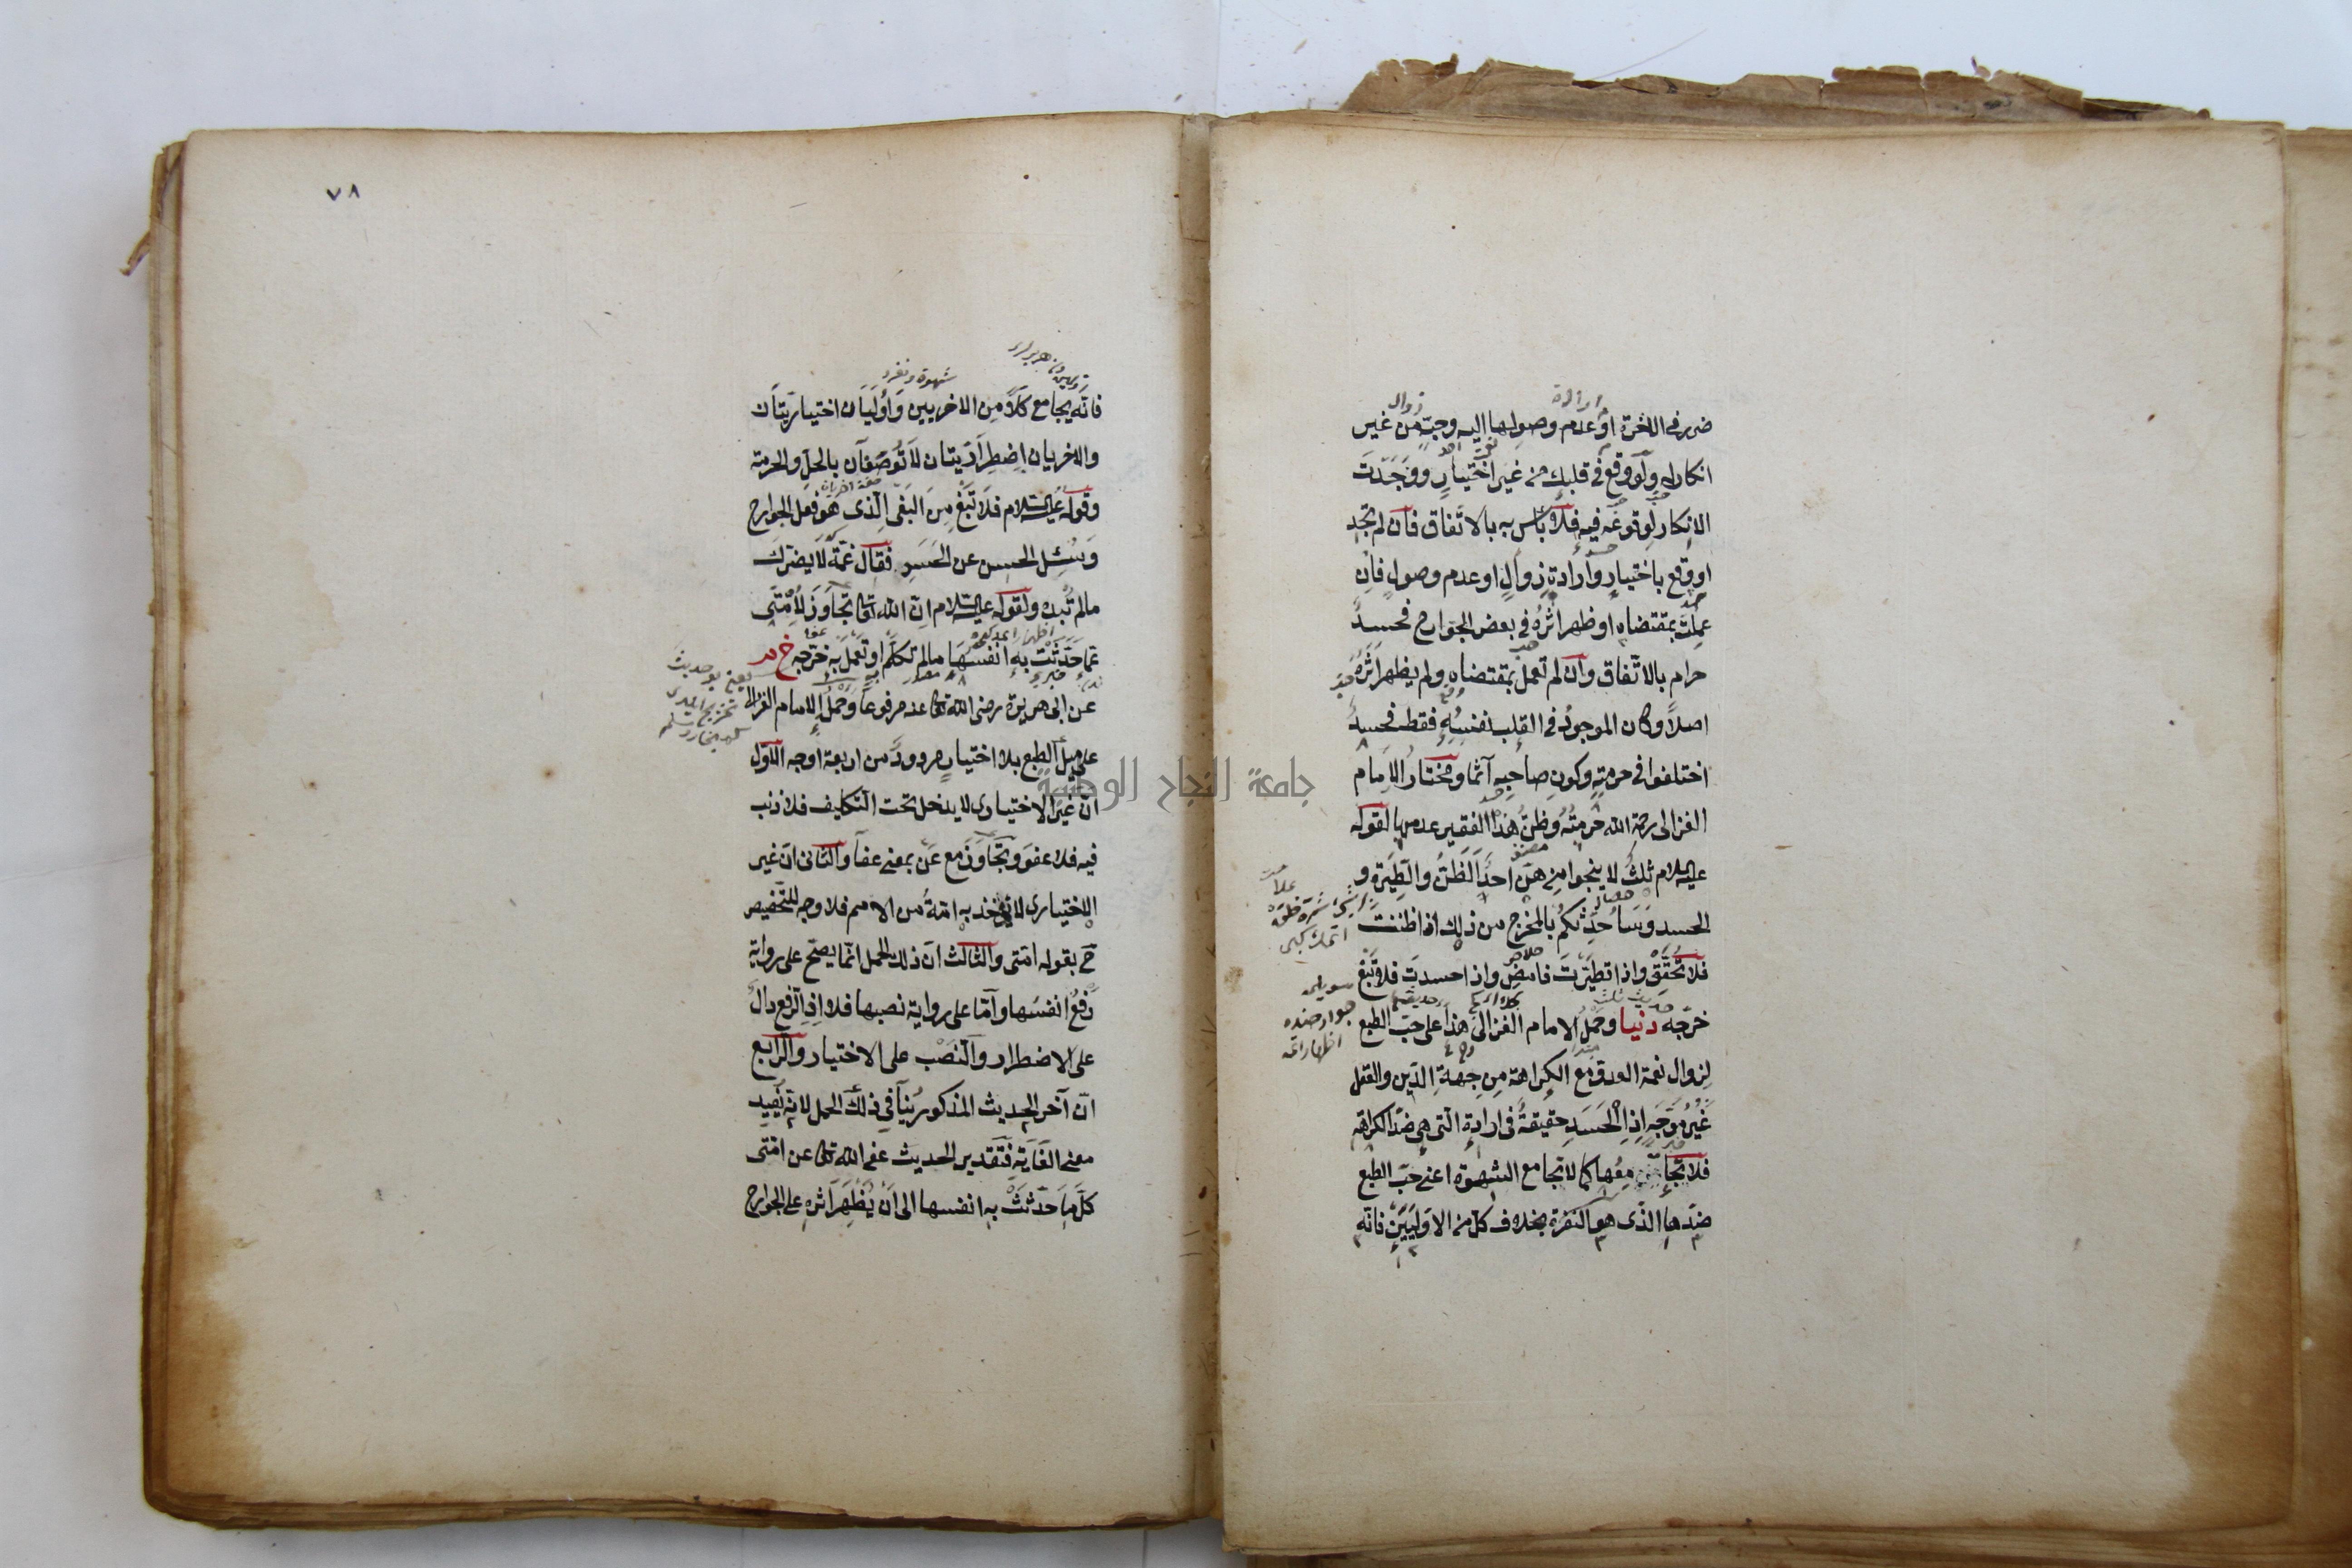 ضرر في الاخرة او عدم وصولها اليه وجبّ من غير
انكار له ولو وقع في قلبك من غير اختيار ووجدت
الانكار لوقوعه فيه فلا بأس به بالاتفاق فان لم تجد
او وقع باختيار وارادة زوال او عدم وصول فان
عملت بمقتضاه او ظهر اثره في بعض الجوارح فحسد
حرام بالاتفاق وان لم تعمل بمقتضاه ولم يظهر اثره
اصلا وكان الموجود في القلب نفسه فقط فحسد
اختلفوا في حرمته وكون صاحبه آثما ومختار الامام
الغزالى رحمة الله حرمته وظن هذا الفقير عدمها لقوله
عليه السلام ثلث لا ينجوا منهن احد الظن والطيرة و
الحسد وسأحدثكم بالمخرج من ذلك اذا ظننت
فلا تحقق واذا تطيرت فامض واذا حسدت فلا تبغ
خرجه دنيا وحمل الامام الغزالى هذا على حب الطبع
لزوال نعمة العدو مع الكراهة من جهة الدين والعقل
غير موجه اذ الحسد حقيقة في ارادة التى هى ضد الكراهة
فلا تجا معها كما لا تجامع الشهوة اعنى حب الطبع
ضدها الذى هو النفرة بخلاف كل من الاوليين فانه
٧٨
شهوة ونفرت
فانه يجامع كلا من الاخريين واوليان اختياريتان
والاخريان اضطراريتان لا توصفان بالحل والحرمة
وقوله عليه السلام فلا تبغ من البغى الذى هو فعل الجوارح
وسئل الحسن عن الحسد فقال غمه لا يضرك
مالم تبده ولقوله عليه السلام ان الله تعالى تجاوز لامتى
عما حدثت به انفسها مالم تكلم او تعمل به خرجه خ م
عن ابى هريرة رضى الله تعالى عنه مرفوعا وحمل الامام الغزالى
على ميل الطبع بلا اختيار مردود من اربعة اوجه الاول
ان غير الاختيارى لا يدخل تحت التكليف فلا ذنب
فيه فلا عفو وتجاوز مع عن بمعنى عفا والثانى ان غير
الاختيارى لا يؤخذ به امة من الامم فلا وجه للتخصيص
ح بقوله امتى والثالث ان ذلك الحمل انما يصح على رواية
رفع انفسها واما على رواية نصبها فلا اذ الرفع دال
على الاضطرار والنصب على الاختيار والرابع
ان آخر الحديث المذكور ينافى ذلك الحمل لانه يفيد
معنى الغاية فتقدير الحديث عفى الله تعالى عن امتى
كل ما حدثت به انفسها الى ان يظهر اثره على الجوارح
جامعة النجاح الوطنية